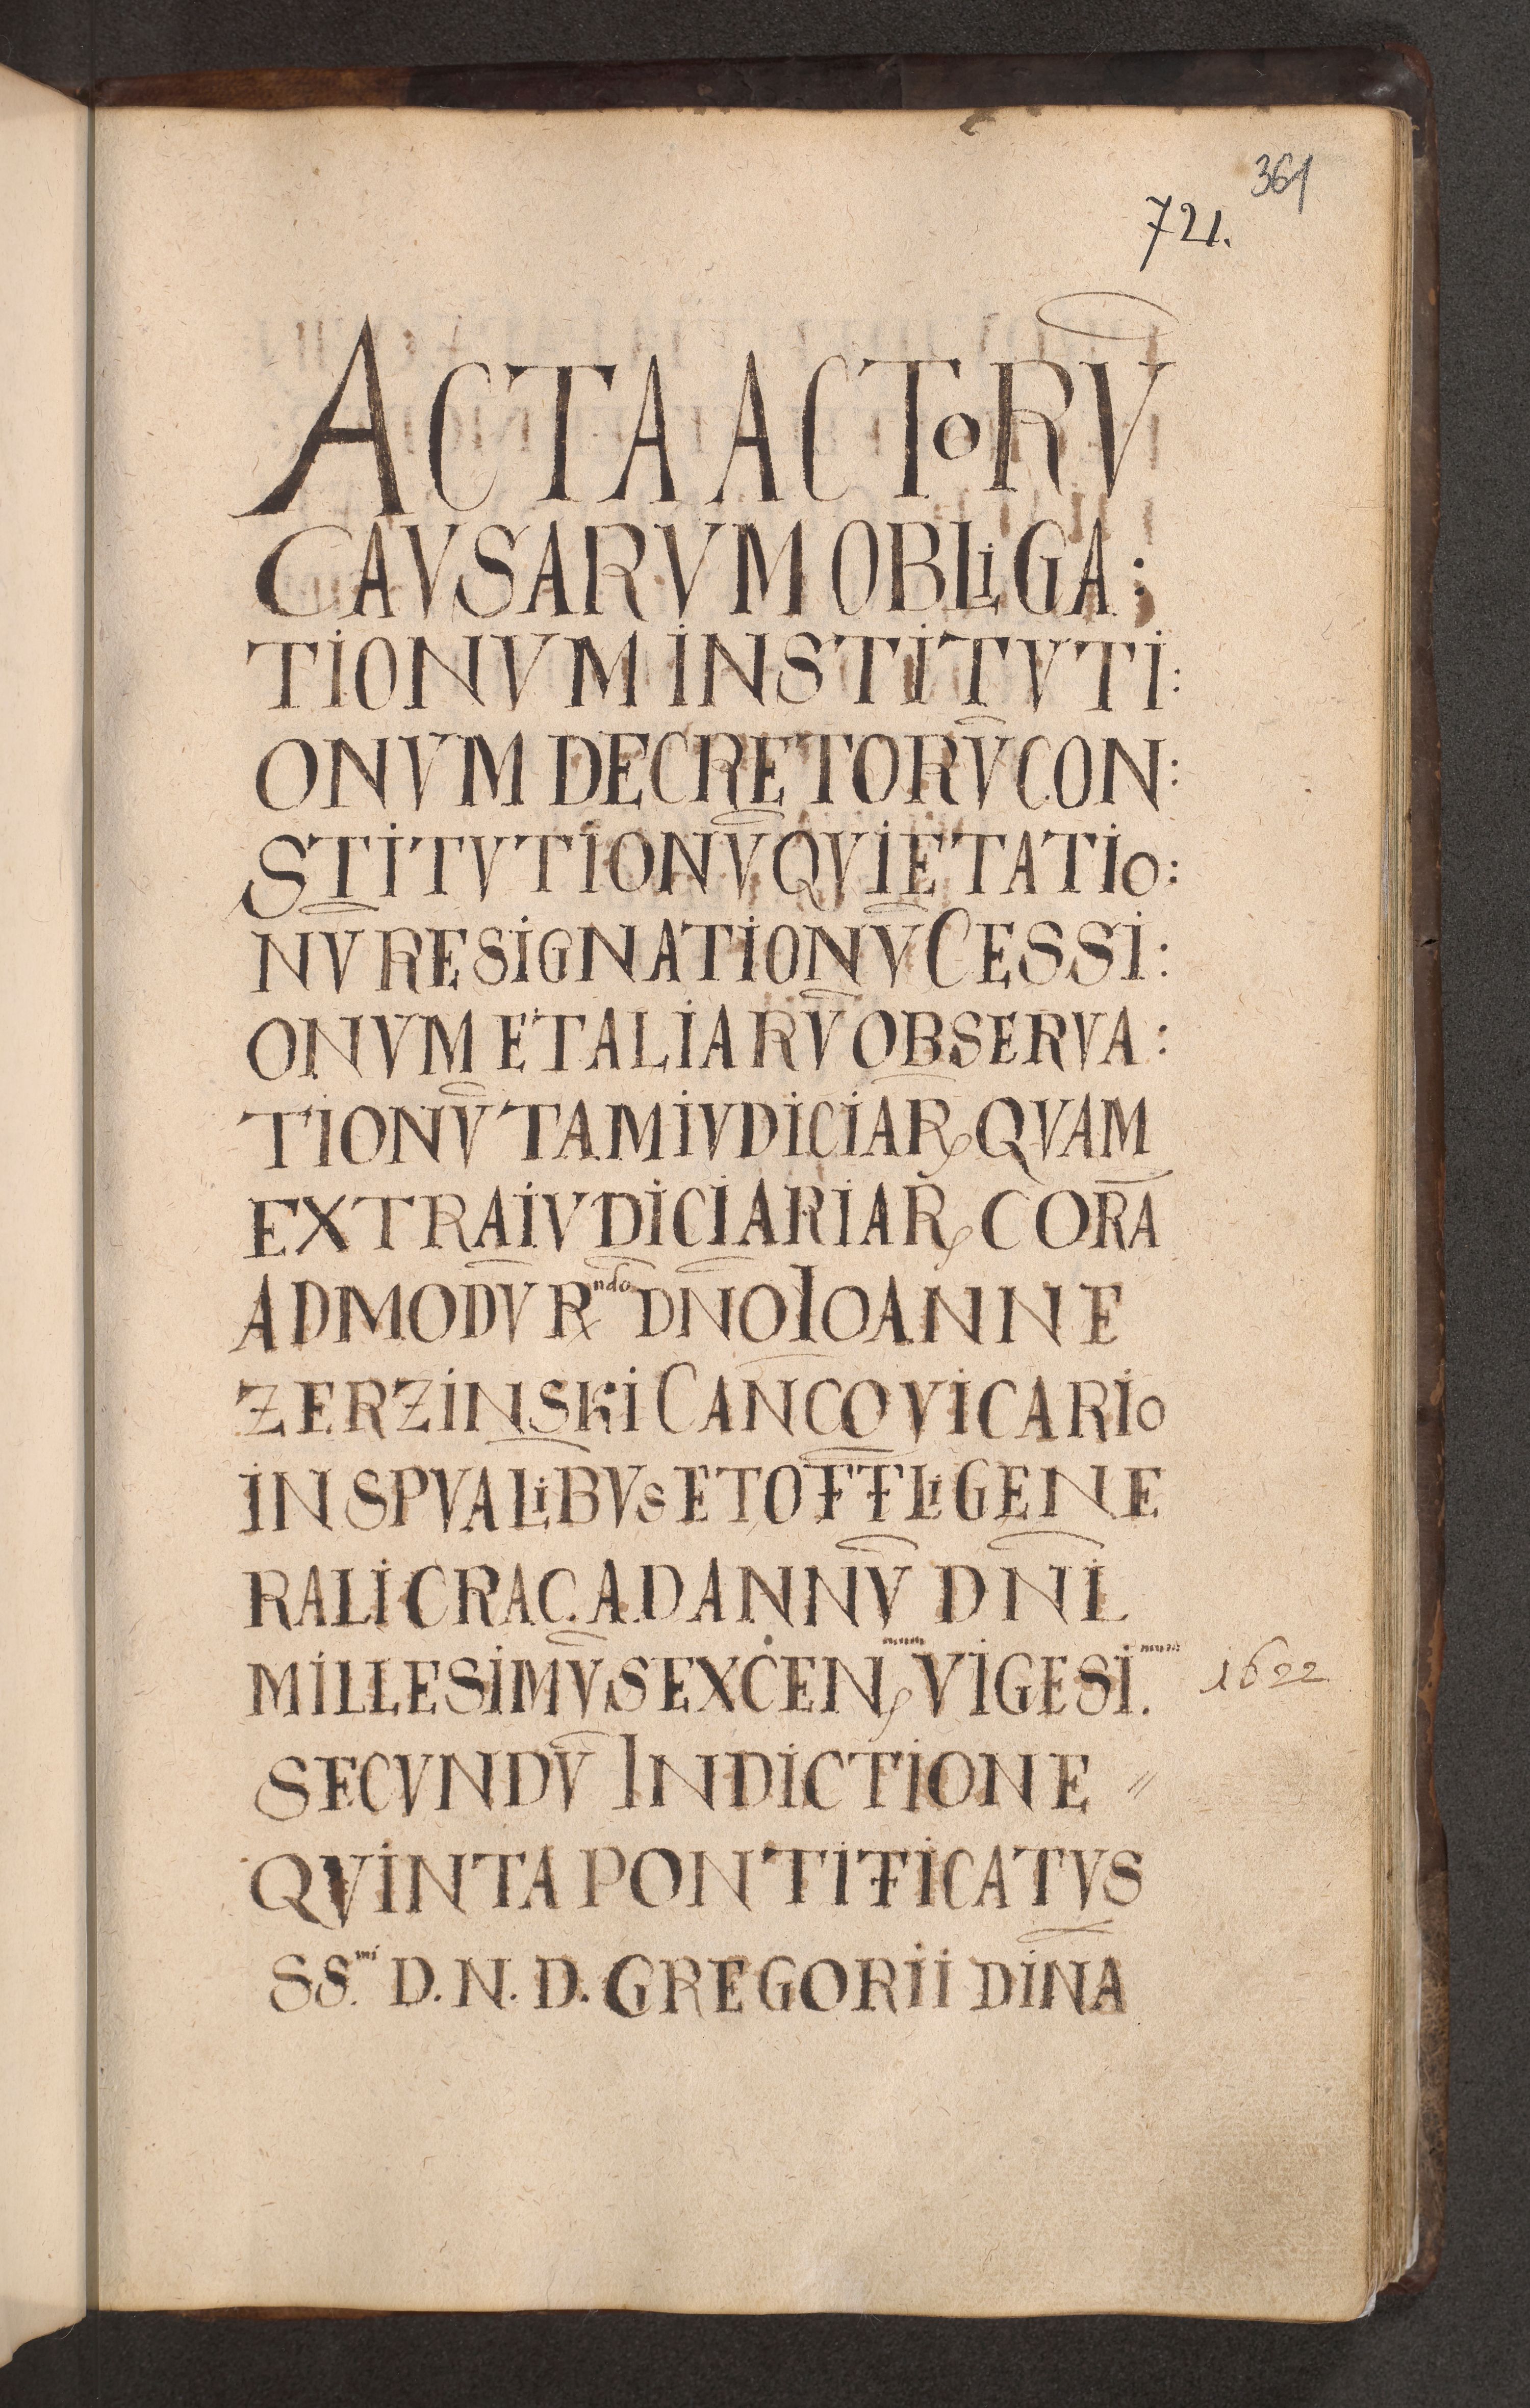 361
721.
ACTA ACToRV̄
CAVSARVM OBLiGA:
TiONVM iNSTiTVTi:
ONVM DECRETORV̄ CON:
STiTVTiONV̄ QViETATio:
NV̄ RESiGNATiONV̄ CESSi:
ONVM ET ALiARV̄ OBSERVA:
TiONV̄ TAM iVDiCiARꝝ QVAM
EXTRAiVDiCiARiARꝝ CORĀ
ADMODV̄ Rⁿᵈᵒ DN̄O IOANNE
ZERZiNSKi CAN̄CO ViCARio
iN SP̄VALiBVs ET OFF̄LI GENE
RALi CRAC. AD ANNV̄ DN̄I
MiLLESiMV̄ SEXCENᵐᵘᵐ ViGESi.ᵐᵘᵐ 1622
SECVNDV̄ INDiCTiONE //
QViNTA PONTiFiCATVS
SS.ᵐⁱ D. N. D. GREGORii DiNA